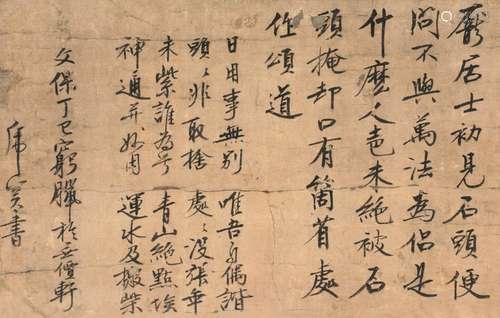 龐居士初見石頭便
問不與萬法為侶是
什麼人声未絶被石
頭掩却口有箇省處
作頌道
日用事無別 唯吾自偶諧
頭々非取捨 處々没張乖
朱紫誰為号 青山絶點埃
神通并妙用 運水及搬柴
文保丁巳窮臘於无價軒
虎書